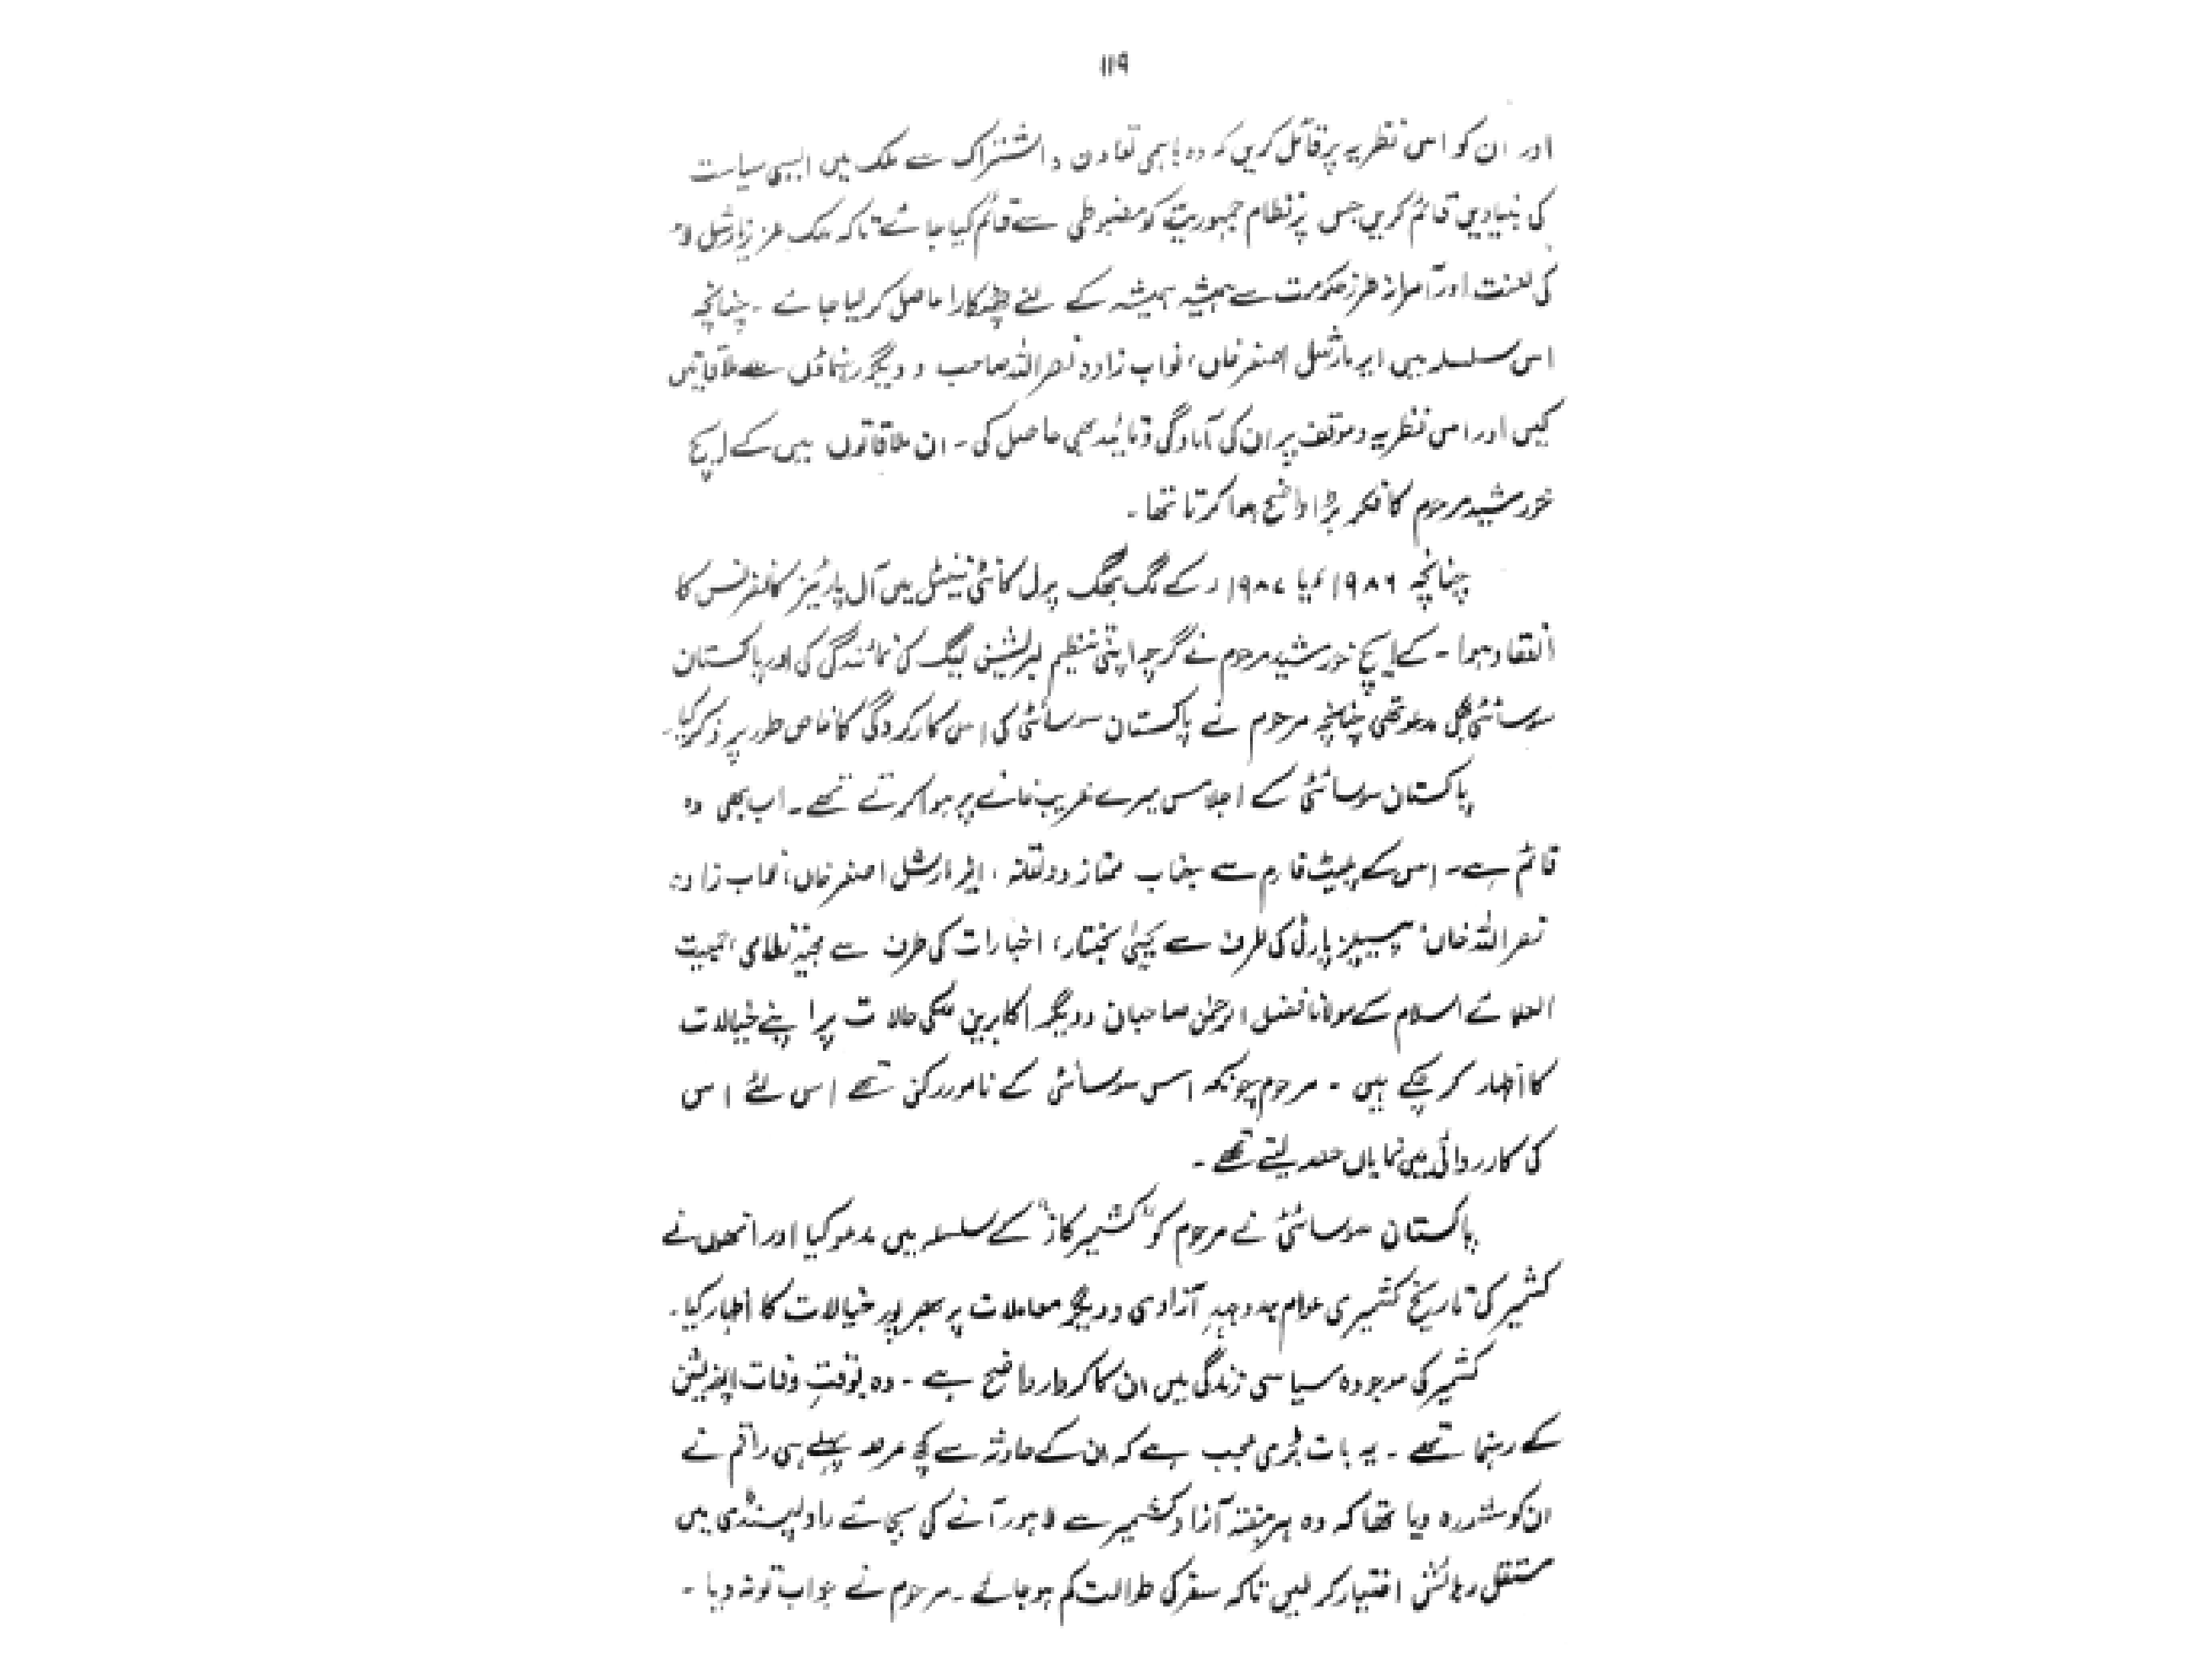 ۱۱۹
اور ان کو اسی نظریہ پر قائل کریں کہ وہ باہمی تعاون و اشتراک سے ملک میں ایسی سیاست
کی بنیادیں قائم کریں جس پر نظام جمہوریت کو مضبوطی سے قائم کیا جائے تاکہ ملک عزیز مارشل لا
کی لعنت اور آمرانہ طرز حکومت سے ہمیشہ ہمیشہ کے لئے چھٹکارا حاصل کر لیا جائے ۔ چنانچہ
اس سلسلہ میں ایر مارشل اصغر خاں، نواب زادہ نصر اللہ صاحب و دیگر رہنماؤں سے ملاقاتیں
کیں اور اسی نظریہ و موقف پر ان کی آمادگی و تائید بھی حاصل کی ۔ ان ملاقاتوں میں کے ایچ
خورشید مرحوم کا فکر بڑا واضح ہوا کرتا تھا ۔
چنانچہ ۱۹۸۶ء یا ۱۹۸۷ء کے لگ بھگ پرل کانٹی نینٹل میں آل پارٹیز کانفرنس کا
انعقاد ہوا ۔ کے ایچ خورشید مرحوم نے گرچہ اپنی تنظیم لبریشن لیگ کی نمائندگی کی اور پاکستان
سوسائٹی بھی مدعو تھی چنانچہ مرحوم نے پاکستان سوسائٹی کی اس کارکردگی کا خاص طور پر ذکر کیا۔
پاکستان سوسائٹی کے اجلاس میرے غریب خانے پر ہوا کرتے تھے ۔ اب بھی وہ
قائم ہے ۔ اس کے پلیٹ فارم سے جناب ممتاز دولتانہ ، ایئر مارشل اصغر خاں، نواب زادہ
نصر اللہ خاں، پیپلز پارٹی کی طرف سے یحییٰ بختیار، اخبارات کی طرف سے مجید نظامی، جمیعت
العلمائے اسلام کے مولانا فضل الرحمٰن صاحبان و دیگر اکابرین ملکی حالات پر اپنے خیالات
کا اظہار کر چکے ہیں ۔ مرحوم چونکہ اس سوسائٹی کے نامور رکن تھے اس لئے اس
کی کارروائی میں نمایاں حصہ لیتے تھے ۔
پاکستان سوسائٹی نے مرحوم کو "کشمیر کاز" کے سلسلہ میں مدعو کیا اور انھوں نے
کشمیر کی تاریخ کشمیری عوام جدوجہدِ آزادی و دیگر معاملات پر بھرپور خیالات کا اظہار کیا ۔
کشمیر کی موجودہ سیاسی زندگی میں ان کا کردار واضح ہے ۔ وہ بوقتِ وفات اپوزیشن
کے رہنما تھے ۔ یہ بات بڑی عجیب ہے کہ ان کے حادثہ سے کچھ عرصہ پہلے ہی راقم نے
ان کو مشورہ دیا تھا کہ وہ ہر ہفتہ آزاد کشمیر سے لاہور آنے کی بجائے راولپنڈی میں
مستقل رہائش اختیار کر لیں تاکہ سفر کی طوالت کم ہو جائے ۔ مرحوم نے جواب تو نہ دیا ۔